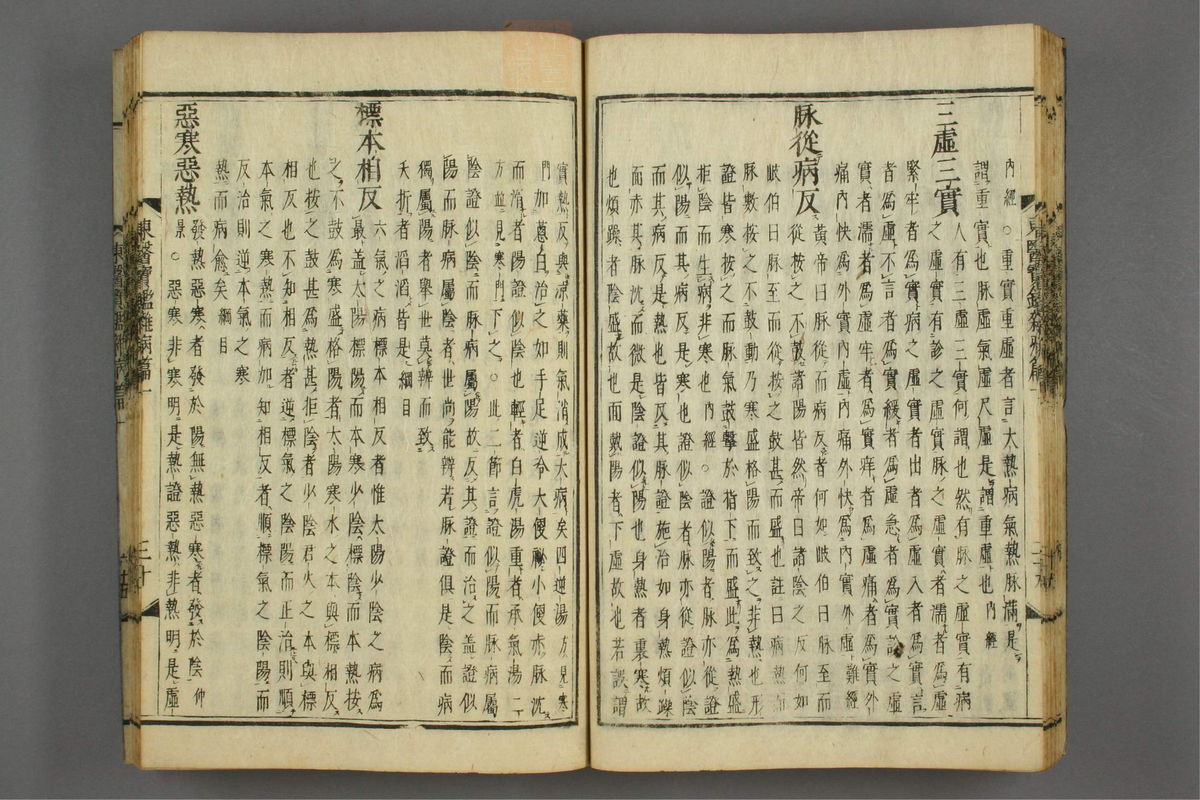 內經○重實重虛者言大熱病氣熱脉滿是
謂重實也脉虛氣虛尺虛是謂重虛也內經
三虛三實 人有三虛三實何謂也然有脉之虛實有病
之虛實有診之虛實脉之虛實者濡者爲虛
緊牢者爲實病之虛實者出者爲虛入者爲實言
者爲虛不言者爲實緩者爲虛急者爲實診之虛
實者濡者爲虛牢者爲實痒者爲虛痛者爲實外
痛內快爲外實內虛內痛外快爲內實外虛難經
脉從病反 黃帝曰脉從而病反者何如岐伯曰脉至而
從按之不鼓諸陽皆然帝曰諸陰之反何如
岐伯曰脉至而從按之鼓甚而盛也註曰病熱而
脉數按之不動乃寒盛格陽而致之非熱也形
證皆寒按之而脉氣鼓擊於指下而盛此爲熱盛
拒陰而生病非寒也內經○證似陽者脉亦從證
似陽而其病反是寒也證似陰者脉亦從證似陰
而其病反是熱也皆反其脉證施治如身熱煩躁
面赤其脉沉而微是陰證似陽也身熱者裏寒故
也煩躁者陰盛故也面戴陽者下虛故也若誤謂
實熱反與涼藥則氣消成大病矣四逆湯方見寒
門加蔥白治之如手足逆冷大便秘小便赤脉沉
而滑者陽證似陰也輕者白虎湯重者承氣湯二
方並見寒門下之○此二節言證似陽而脉病屬
陰證似陰而脉病屬陽故反其證而治之盖證似
陽而脉病屬陰者世尚能辨若脉證俱是陰而病
獨屬陽者擧世莫辨而致
夭折者滔滔皆是綱目
標本相反 六氣之病標本相反者惟太陽少陰之病爲
最盖太陽標陽而本寒少陰標陰而本熱按
之不鼓爲寒盛格陽者太陽寒水之本與標相反
也按之鼓甚爲熱甚拒陰者少陰君火之本與標
相反也不知相反者逆標氣之陰陽而正治則順
本氣之寒熱而病加知相反者順標氣之陰陽而
反治則逆本氣之寒
熱而病愈矣綱目
惡寒惡熱 發熱惡寒者發於陽無熱惡寒者發於陰仲
景○惡寒非寒明是熱證惡熱非熱明是虛
東醫寶鑑雜病篇一